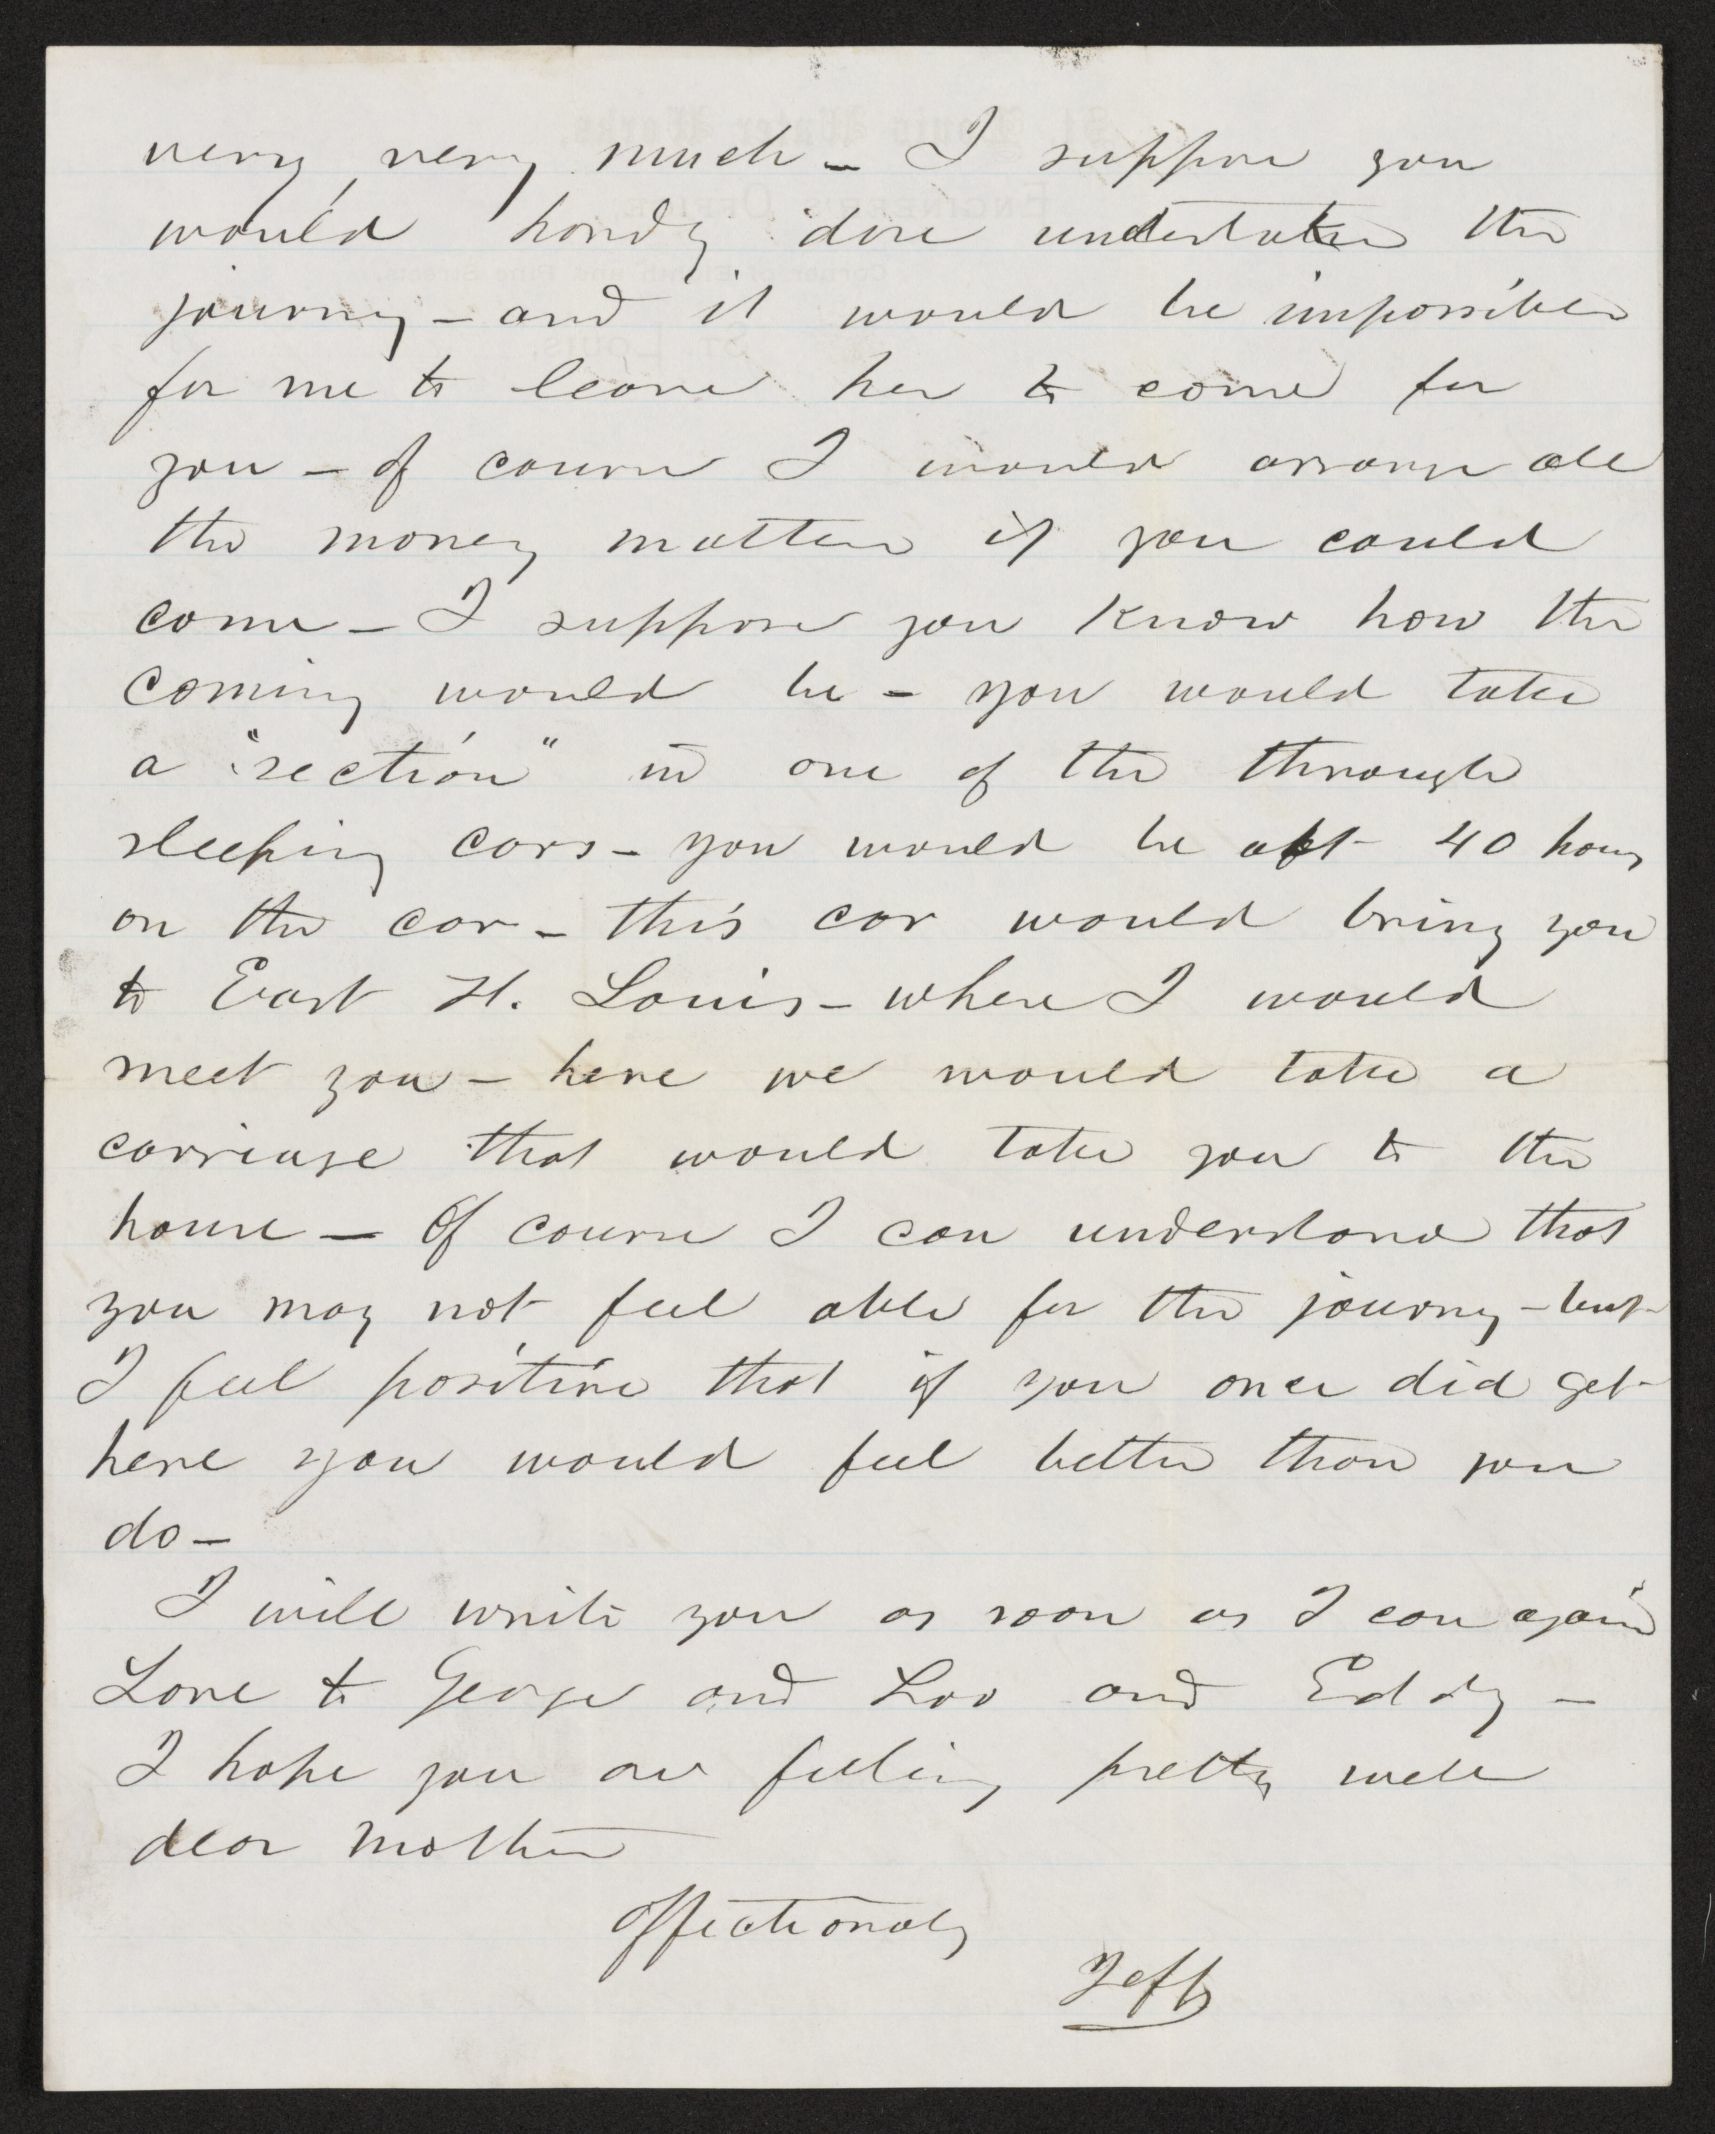 very very much – I suppose you
would hardly dare undertake the
journey – and it would be impossible
for me to leave her to come for
you – of course I would arrange all
the money matters if you could
come – I suppose you know how the
coming would be – you would take
a "section" in one of the through
sleeping cars – you would be abt 40 hours
on the car – this car would bring you
to East St. Louis – where I would
meet you – here we would take a
carriage that would take you to the
house – Of course I can understand that
you may not feel able for the journey – but
I feel positive that if you once did get
here you would feel better than you
do –
I will write you as soon as I can again
Love to George and Loo and Eddy –
I hope you are feeling pretty well
dear Mother
Affectionately
Jeff